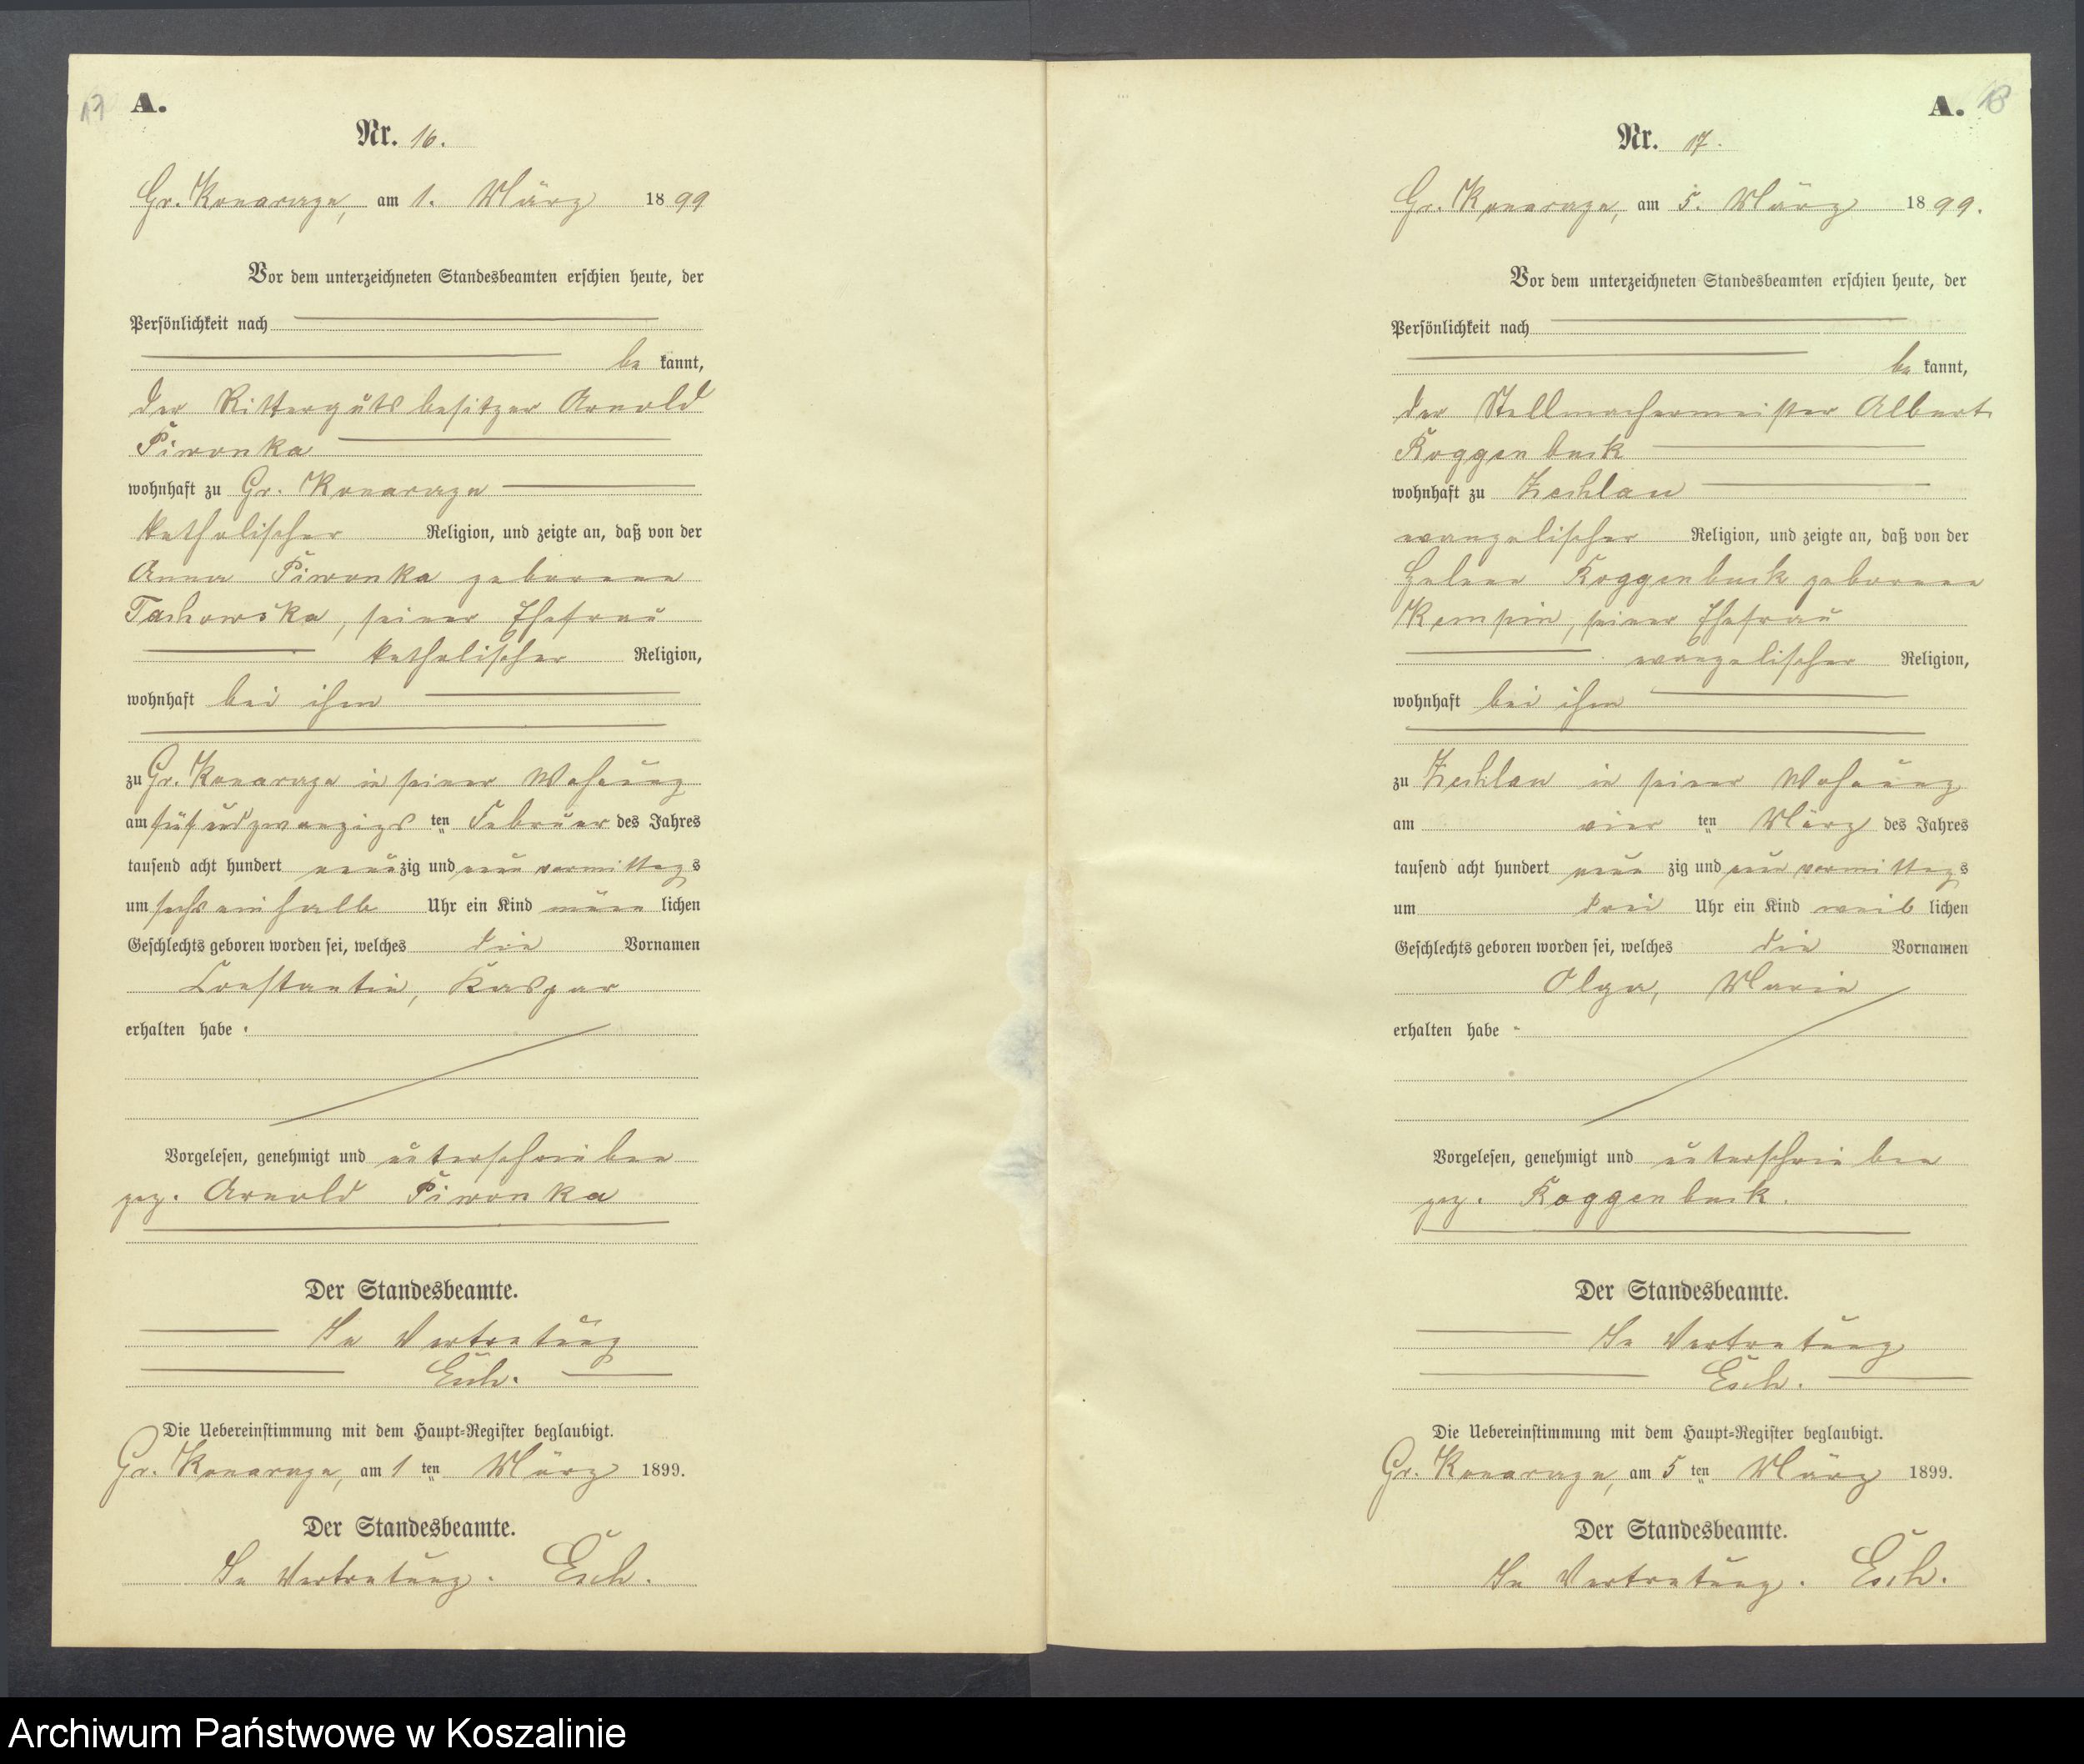 17 A.
Nr. 16.
Gr. Konarzyn, am 1. März 1899
Vor dem unterzeichneten Standesbeamten erschien heute, der
Persönlichkeit nach
be kannt,
der Rittergutsbesitzer Arnold
Piwonka
wohnhaft zu Gr. Konarzyn
katholischer Religion, und zeigte an, daß von der
Anna Piwonka geborene
seiner Ehefrau
katholischer Religion,
wohnhaft bei ihm
zu Gr. Konarzyn in seiner Wohnung
am fünfundzwanzigs ten Februar des Jahres
tausend acht hundert neunzig und neun vormittags
um sechseinhalb Uhr ein Kind männ lichen
Geschlechts geboren worden sei, welches die Vornamen
Constantin, Kaspar
erhalten habe.
Vorgelesen, genehmigt und unterschrieben
gez. Arnold Piwonka
Der Standesbeamte.
In Vertretung
Esch.
Die Uebereinstimmung mit dem Haupt-Register beglaubigt.
Gr. Konarzyn, am 1 ten März 1899.
Der Standesbeamte.
In Vertretung. Esch.
A. 18
Nr. 17.
Gr. Konarzyn, am 5. März 1899.
Vor dem unterzeichneten Standesbeamten erschien heute, der
Persönlichkeit nach
be kannt,
der Stellmachermeister Albert
Roggenbuck
wohnhaft zu Zechlau
evangelischer Religion, und zeigte an, daß von der
Helene Roggenbuck geborene
Kempin, seiner Ehefrau
evangelischer Religion,
wohnhaft bei ihm
zu Zechlau in seiner Wohnung
am vier ten März des Jahres
tausend acht hundert neun zig und neun vormittags
um drei Uhr ein Kind weib lichen
Geschlechts geboren worden sei, welches die Vornamen
Olga, Marie
erhalten habe.
Vorgelesen, genehmigt und unterschrieben
gez. Roggenbuck.
Der Standesbeamte.
In Vertretung
Esch.
Die Uebereinstimmung mit dem Haupt-Register beglaubigt.
Gr. Konarzyn, am 5 ten März 1899.
Der Standesbeamte.
In Vertretung. Esch.
Archiwum Państwowe w Koszalinie